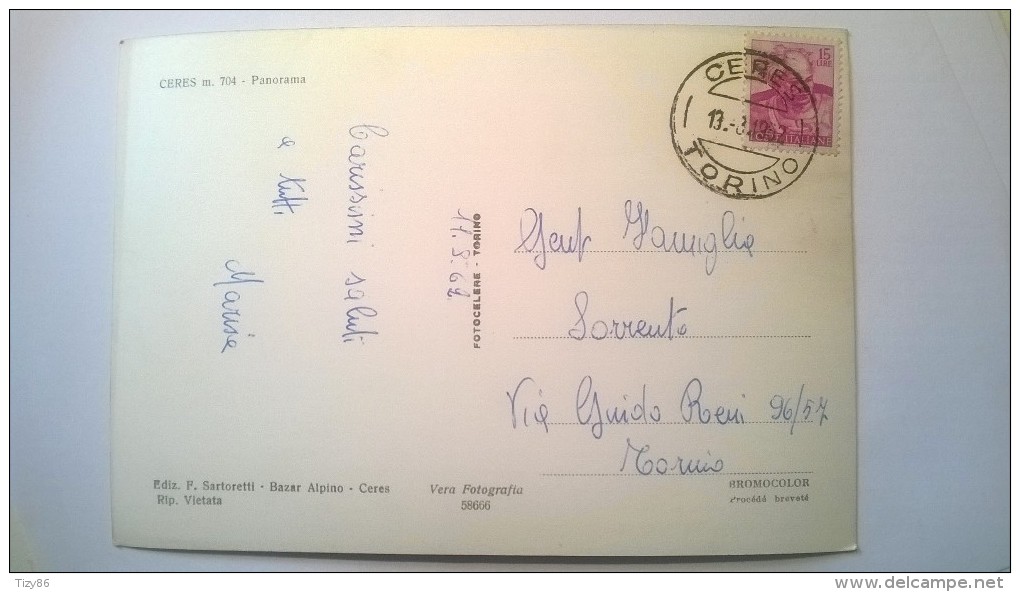 CERES m. 704 - Panorama
Carissimi saluti
e tutti
Marisa
11.8.62
FOTOCELERE - TORINO
15
LIRE
ITALIANE
CERES
TORINO
13.-8.1962
Gent Famiglia
Sorrento
Via Guido Reni 96/57
Torino
Ediz. F. Sartoretti - Bazar Alpino - Ceres
Rip. Vietata
Vera Fotografia
58666
BROMOCOLOR
Procédé breveté
Tizy86
delcampe.net